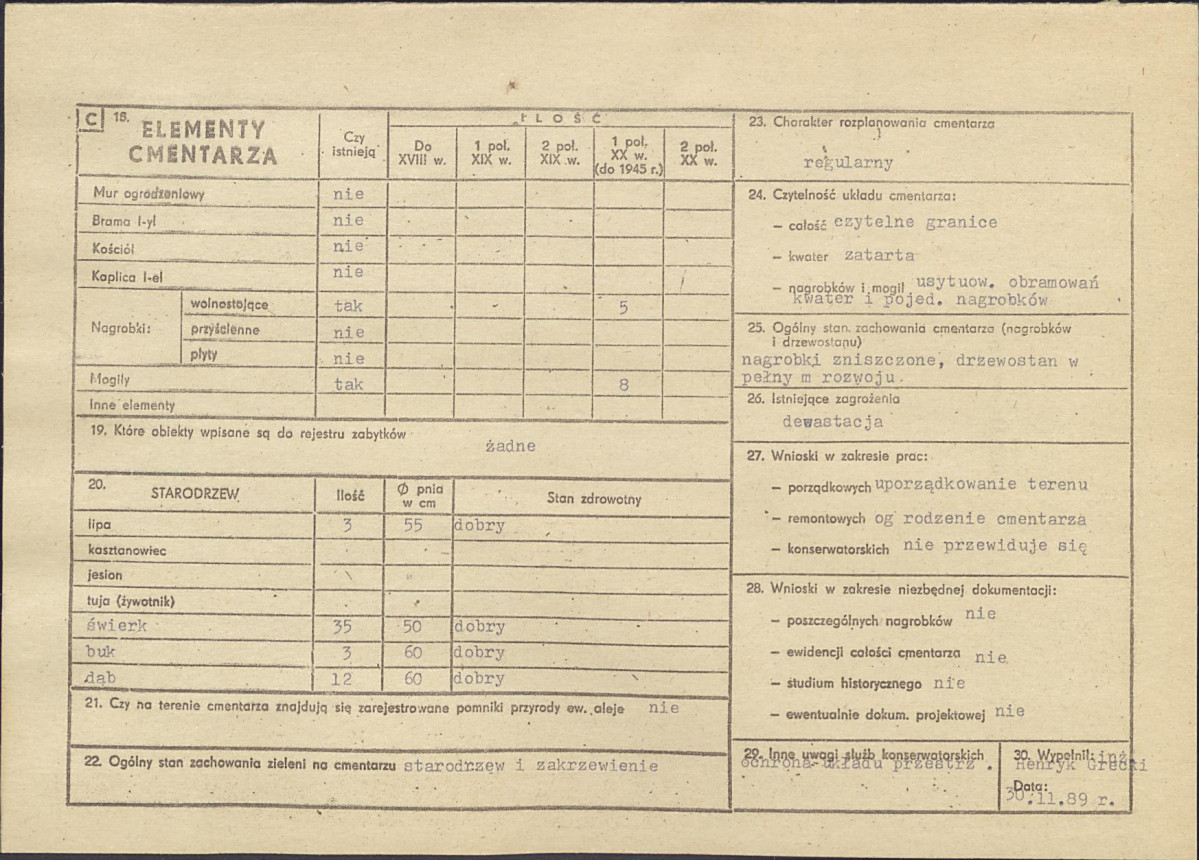 C 18. ELEMENTY CMENTARZA
Czy istnieją
IŁOŚĆ
Do XVIII w.
1 poł. XIX w.
2 poł. XIX w.
1 poł. XX w. (do 1945 r.)
2 poł. XX w.
Mur ogrodzeniowy nie
Brama I-yl nie
Kościół nie
Kaplica I-el nie
Nagrobki:
wolnostojące tak 5
przyścienne nie
płyty nie
Mogiły tak 8
Inne elementy
19. Które obiekty wpisane są do rejestru zabytków
żadne
20. STARODRZEW Ilość Ø pnia w cm Stan zdrowotny
lipa 3 55 dobry
kasztanowiec
jesion
tuja (żywotnik)
świerk 35 50 dobry
buk 3 60 dobry
dąb 12 60 dobry
21. Czy na terenie cmentarza znajdują się zarejestrowane pomniki przyrody ew. aleje nie
22. Ogólny stan zachowania zieleni na cmentarzu starodrzew i zakrzewienie
23. Charakter rozplanowania cmentarza
regularny
24. Czytelność układu cmentarza:
– całość czytelne granice
– kwater zatarta
– nagrobków i mogił usytuow. obramowań
kwater i pojed. nagrobków
25. Ogólny stan zachowania cmentarza (nagrobków
i drzewostanu)
nagrobki zniszczone, drzewostan w
pełny m rozwoju.
26. Istniejące zagrożenia
dewastacja
27. Wnioski w zakresie prac:
– porządkowych uporządkowanie terenu
– remontowych og rodzenie cmentarza
– konserwatorskich nie przewiduje się
28. Wnioski w zakresie niezbędnej dokumentacji:
– poszczególnych nagrobków nie
– ewidencji całości cmentarza nie
– studium historycznego nie
– ewentualnie dokum. projektowej nie
29. Inne uwagi służb konserwatorskich
ochrona układu przestrz .
30. Wypełnił: inż
Henryk Grecki
Data:
30.11.89 r.